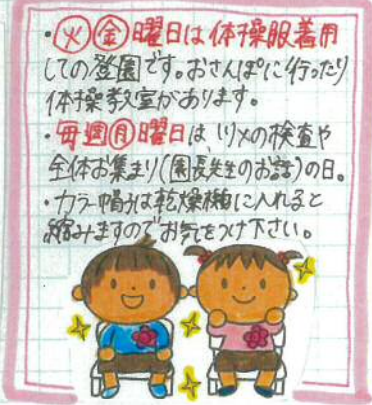 ・㊋㊎曜日は体操服着用
しての登園です。おさんぽに行ったり
体操教室があります。
・毎週㊊曜日は、ツメの検査や
全体お集まり(園長先生のお話)の日。
・カラー帽子は乾燥機に入れると
縮みますのでお気をつけ下さい。